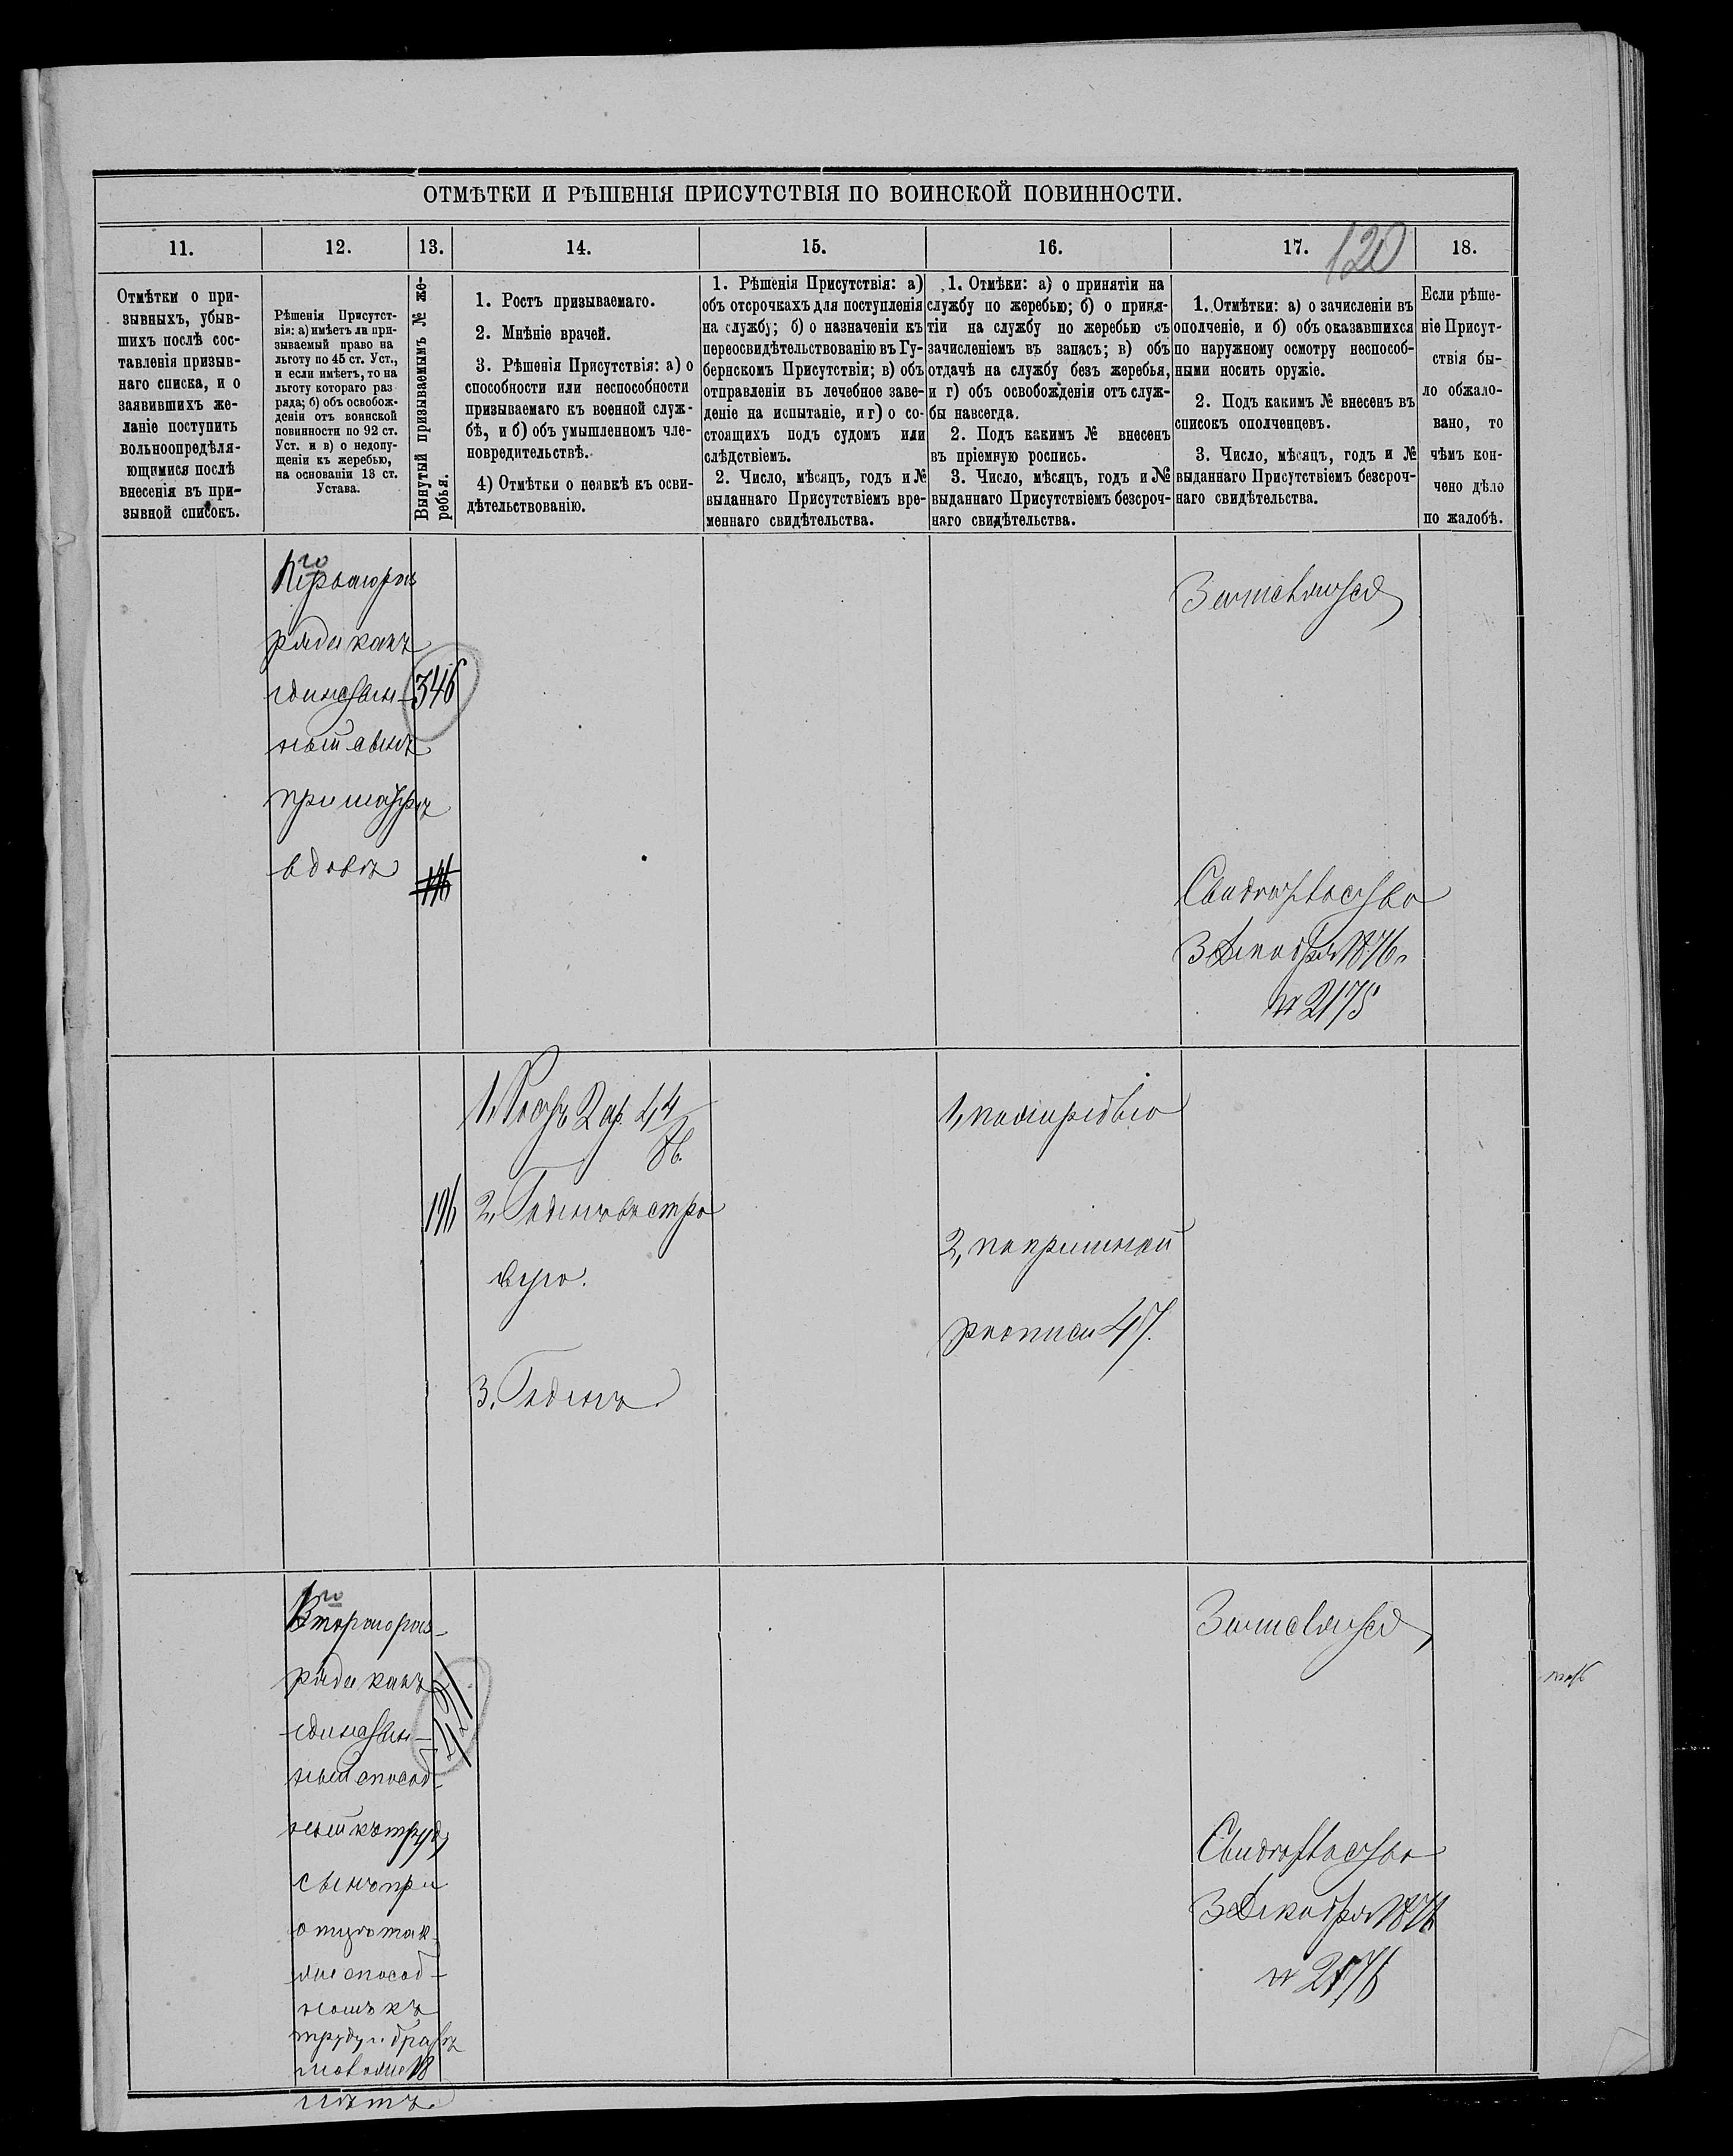 ОТМѢТКИ И РѢШЕНІЯ ПРИСУТСТВІЯ ПО ВОИНСКОЙ ПОВИННОСТИ.
120
11.
12.
13.
14.
15.
16.
17.
18.
Отмѣтки о при-
зывныхъ, убыв-
шихъ послѣ сос-
тавленія призыв-
наго списка, и о
заявившихъ же-
ланіе поступить
вольноопредѣля-
ющимися послѣ
внесенія въ при-
зывной списокъ.
Рѣшенія Присутст-
вія: а) имѣетъ ли при-
зываемый право на
льготу по 45 ст. Уст.,
и если имѣетъ, то на
льготу котораго раз
ряда; б) объ освобож-
деніи отъ воинской
повинности по 92 ст.
Уст. и в) о недопу-
щеніи къ жеребью,
на основаніи 13 ст.
Устава.
Вынутый призываемымъ № же-
ребья.
1. Ростъ призываемаго.
2. Мнѣніе врачей.
3. Рѣшенія Присутствія: а) о
способности или неспособности
призываемаго къ военной служ-
бѣ, и б) объ умышленномъ чле-
новредительствѣ.
4) Отмѣтки о неявкѣ къ осви-
дѣтельствованію.
1. Рѣшенія Присутствія: а)
объ отсрочкахъ для поступленія
на службу; б) о назначеніи къ
переосвидѣтельствованію въ Гу-
бернскомъ Присутствіи; в) объ
отправленіи въ лечебное заве-
деніе на испытаніе, и г) о со-
стоящихъ подъ судомъ или
слѣдствіемъ.
2. Число, мѣсяцъ, годъ и №
выданнаго Присутствіемъ вре-
меннаго свидѣтельства.
1. Отмѣки: а) о принятіи на
службу по жеребью; б) о приня-
тіи на службу по жеребью съ
зачисленіемъ въ запасъ; в) объ
отдачѣ на службу безъ жеребья,
и г) объ освобожденіи отъ служ-
бы навсегда.
2. Подъ какимъ № внесенъ
въ пріемную роспись.
3. Число, мѣсяцъ, годъ и №
выданнаго Присутствіемъ безсроч-
наго свидѣтельства.
1. Отмѣтки: а) о зачисленіи въ
ополченіе, и б) объ оказавшихся
по наружному осмотру неспособ-
ными носить оружіе.
2. Подъ какимъ № внесенъ въ
списокъ ополченцевъ.
3. Число, мѣсяцъ, годъ и №
выданнаго Присутствіемъ безсроч-
наго свидѣтельства.
Если рѣше-
ніе Присут-
ствія бы-
ло обжало-
вано, то
чѣмъ кон-
чено дѣло
по жалобѣ.
1го
Перваго раз
ряда какъ
единствен-
ный сынъ
при матери
вдовѣ
346
Зачисляется
Свидетельство
3 Декабря 1876 г
№ 2175
196
1, Ростъ 2 ар. 4 4/8 в.
2, Годенъ въ стро
евую.
3. Годенъ
1, по жеребью
2, по приемной
росписи 47.
1го
Втораго раз-
ряда какъ
единствен-
ный способ-
ный къ труду
сынъ при
отце также
способ-
номъ къ
труду и братѣ
моложе 18
лѣтъ.
Зачисляется
Свидетельство
3 Декабря 1876
№ 2176